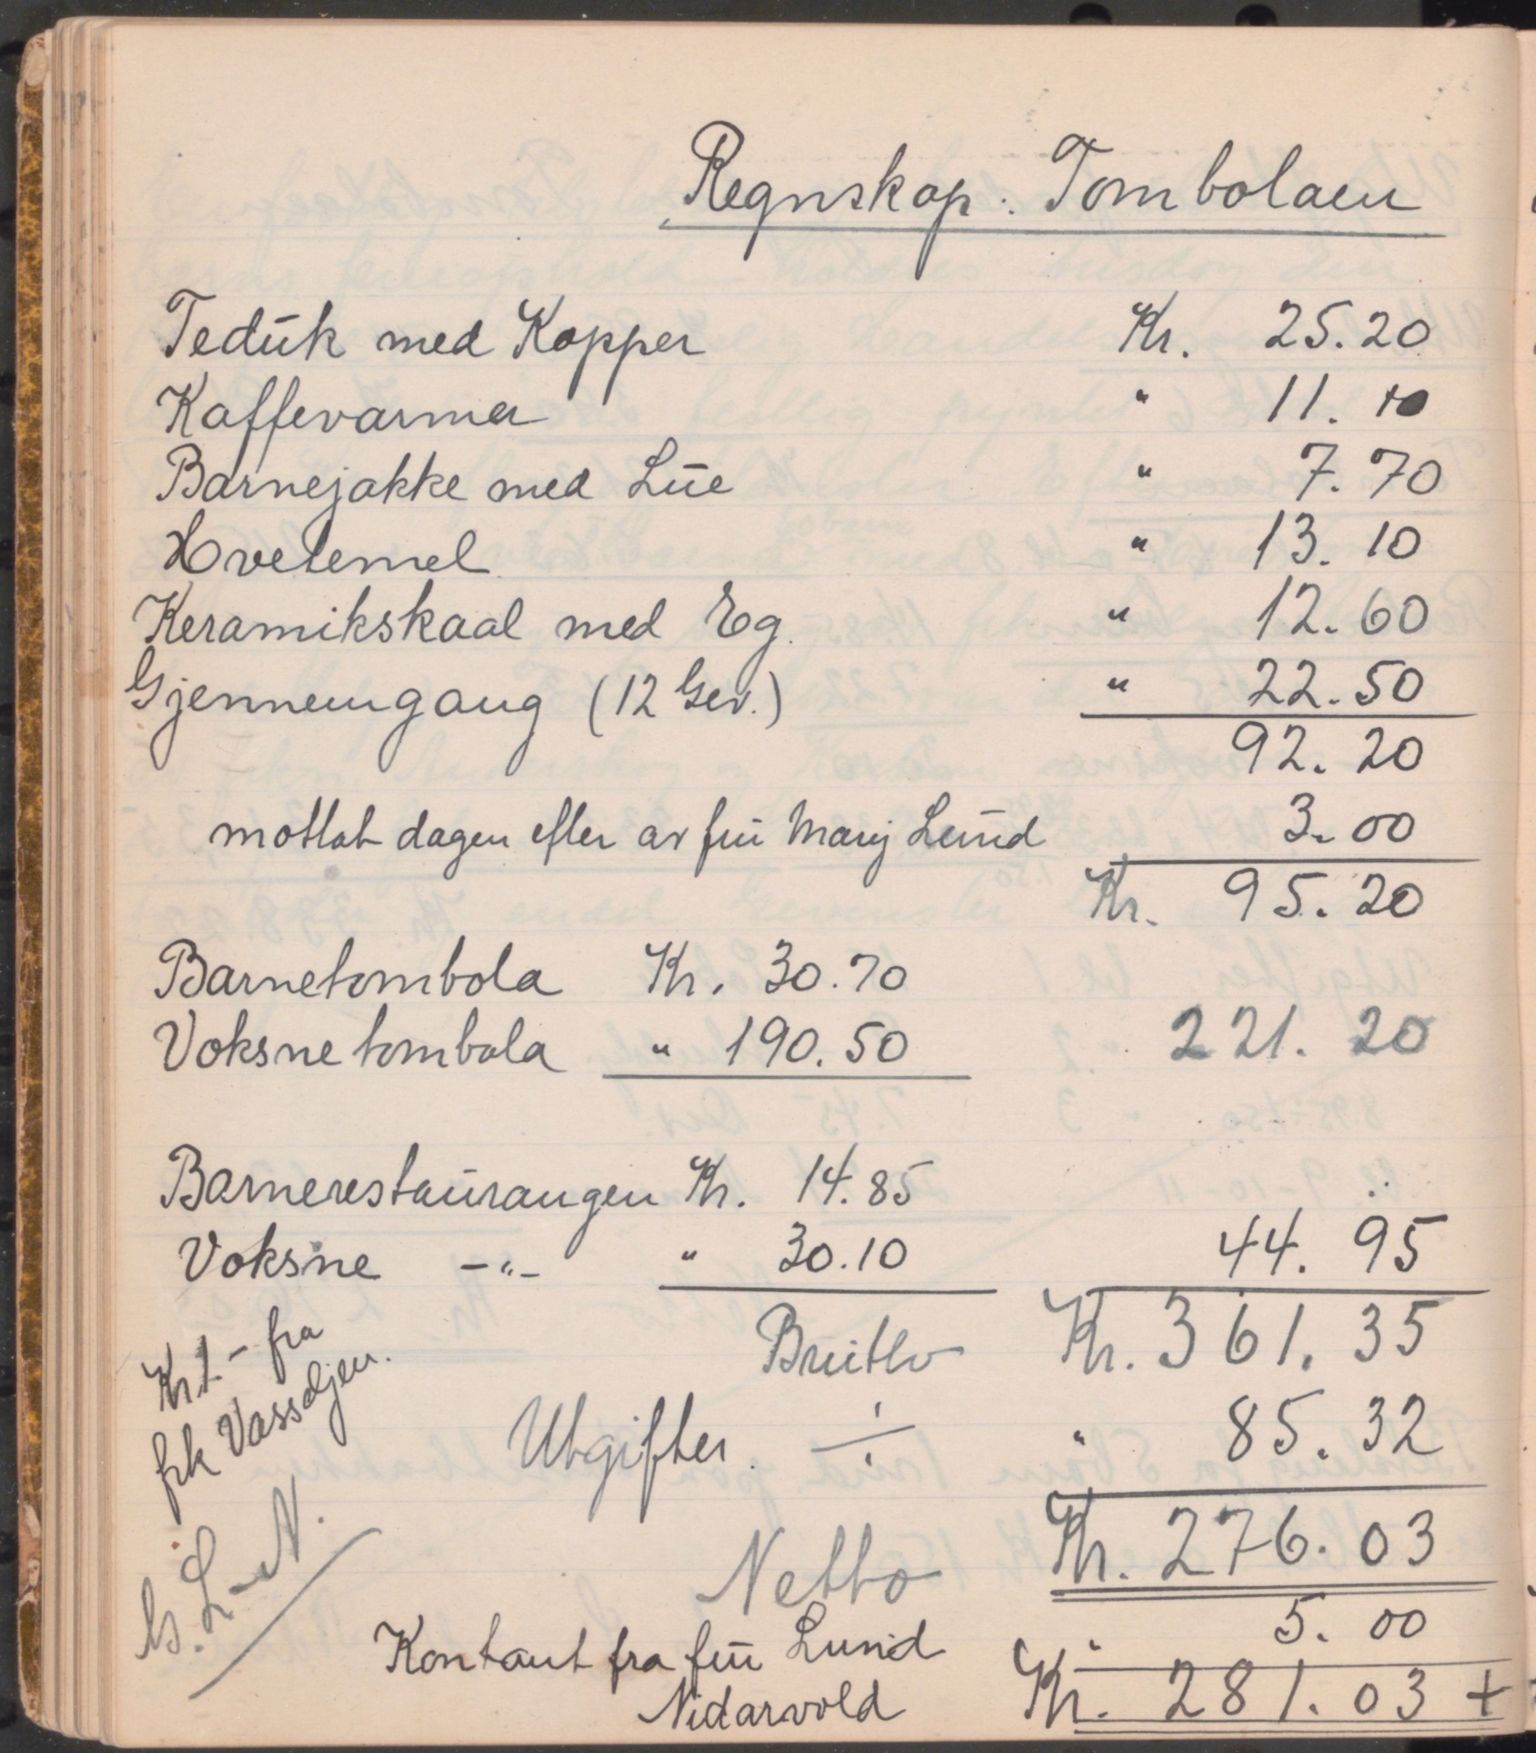 Regnskap. Tombolaen
Teduk med Kopper Kr. 25.20
Kaffevarmer " 11.10
Barnejakke med Lue " 7.70
Hvetemel " 13.10
Keramikskaal med Eg. " 12.60
Gjennemgang (12 Gev.) " 22.50
92.20
mottat dagen efter av fru Marij Lund 3.00
Kr. 95.20
Barnetombola Kr. 30.70
Voksnetombola " 190.50 221.20
Barnerestaurangen Kr. 14.85
Voksne -"- " 30.10 44.95
Brutto Kr. 361.35
Utgifter ÷ " 85.32
Kr. 276.03
Netto
Kontant fra fru Lund " 5.00
Nidarvold Kr. 281.03 +
Kr 1.- fra
frk Vassdjen.
L-N.